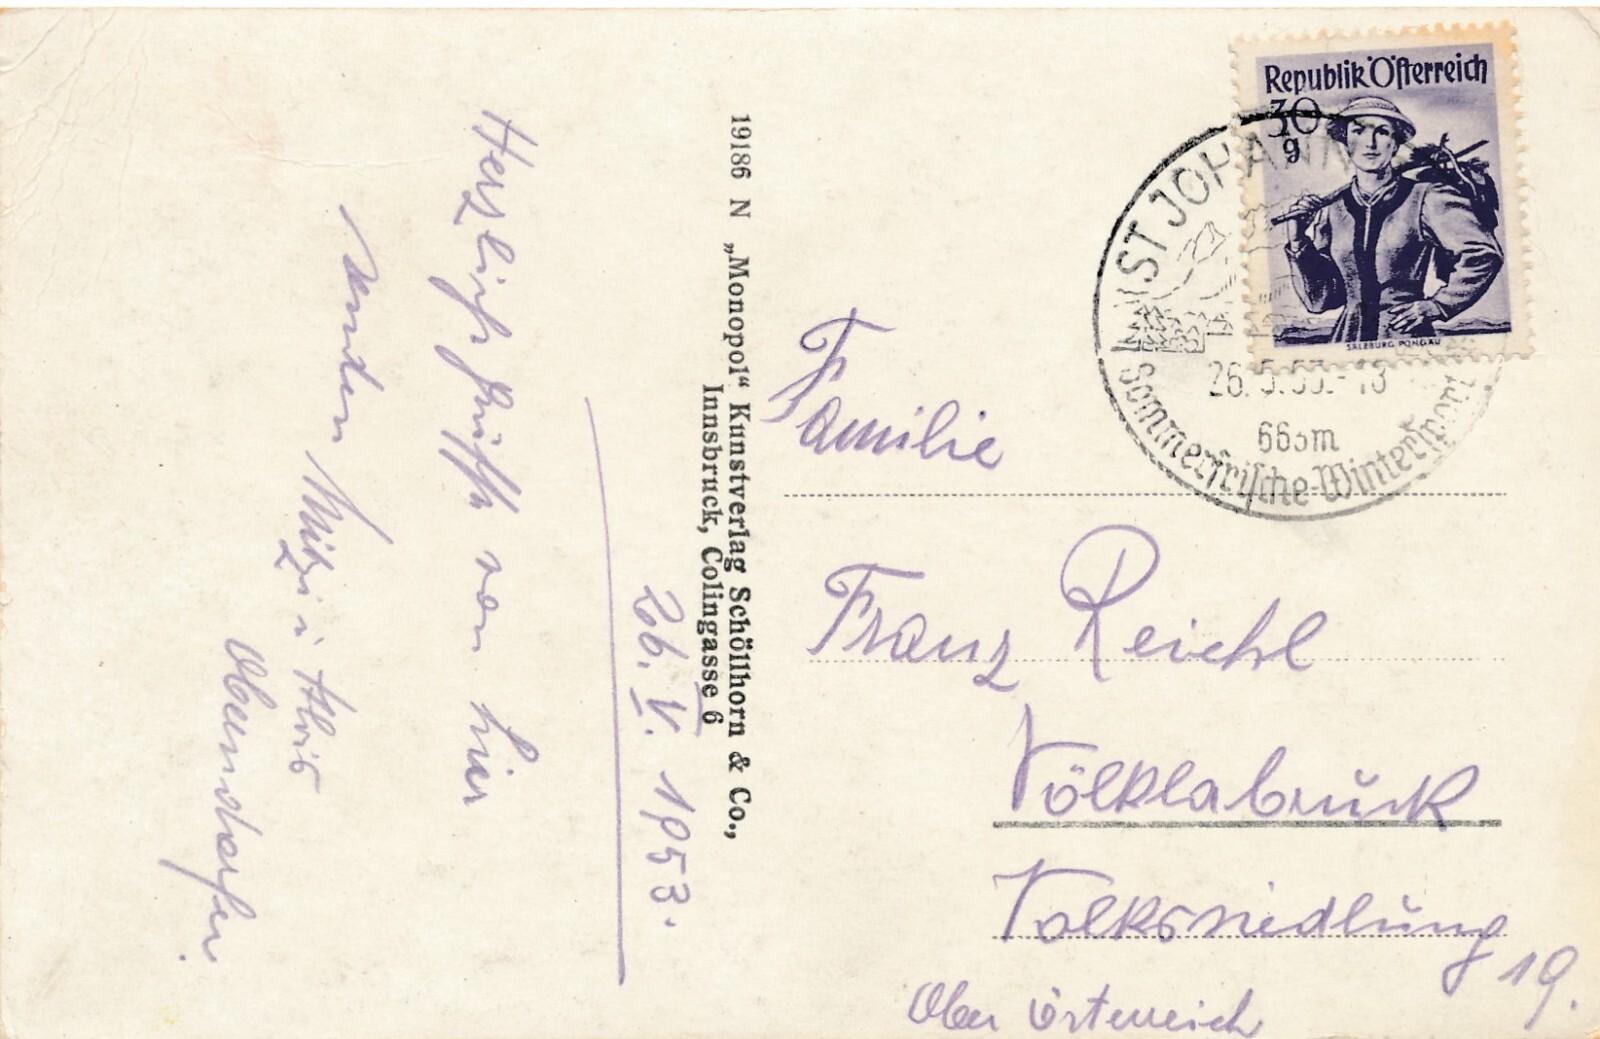 Herzliche Grüsse von hier
senden Mitzi u Alois
Oberndorfer.
26. V. 1953.
19186 N „Monopol“ Kunstverlag Schöllhorn & Co.,
Innsbruck, Colingasse 6
Republik Österreich
30
g
SALZBURG, PONGAU
ST JOHANN
26.5.53.-18
Sommerfrische-Wintersport
Familie
Franz Reichl
Völklabruck
Volkssiedlung 19.
Ober Österreich